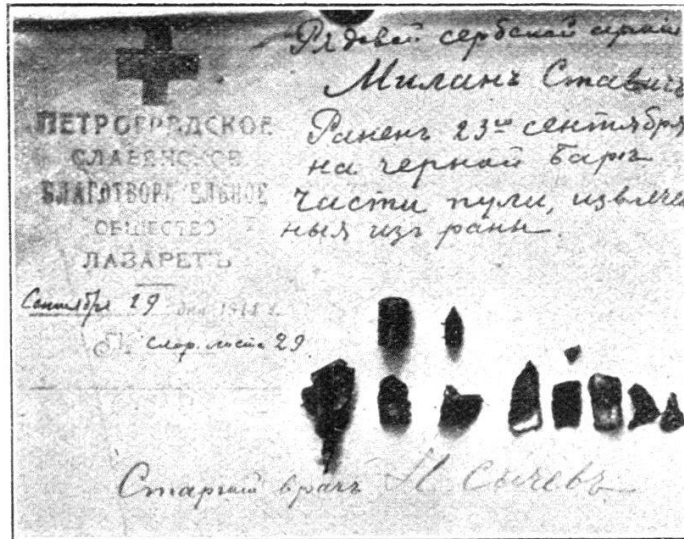 ПЕТРОГРАДСКОЕ
СЛАВЯНСКОЕ
БЛАГОТВОРИТЕЛЬНОЕ
ОБЩЕСТВО
ЛАЗАРЕТЪ
Сентября 19 дня 1914 г.
скор. листа 29
Рядовой сербской армии
Миланъ Ставичъ
Раненъ 23го сентября
на черной Баръ
Части пули, извлечен
ныя изъ раны.
Старшій врачъ Н Сычевъ